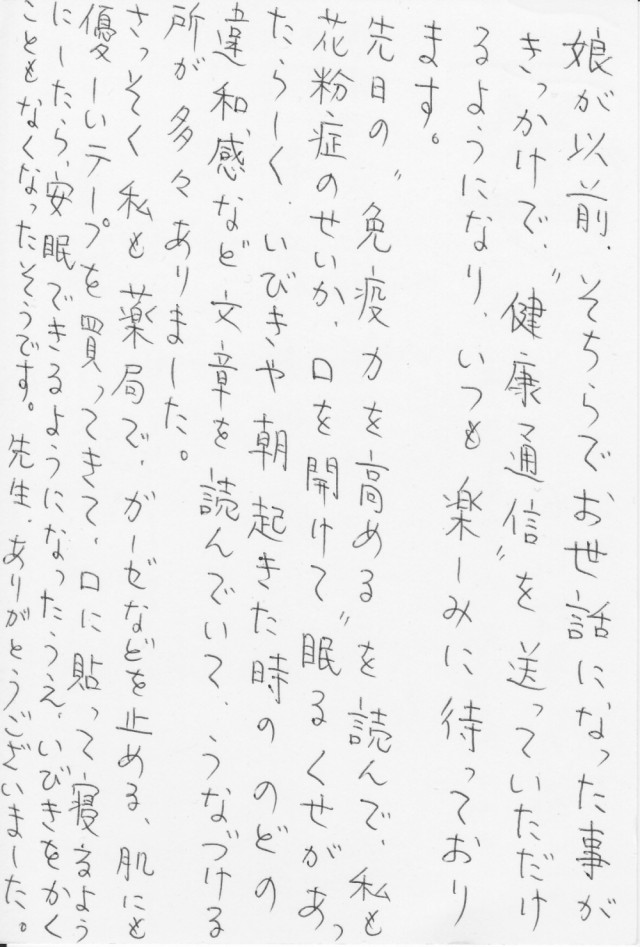 娘が以前、そちらでお世話になった事が
きっかけで、〝健康通信〟を送っていただけ
るようになり、いつも楽しみに待っており
ます。
先日の〝免疫力を高める〟を読んで、私も
花粉症のせいか、口を開けて〝眠るくせがあっ
たらしく、いびきや朝起きた時ののどの
違和感など文章を読んでいて、うなづける
所が多々ありました。
さっそく私も薬局で、ガーゼなどを止める、肌にも
優しいテープを買ってきて、口に貼って寝るよう
にしたら、安眠できるようになったうえ、いびきをかく
こともなくなったそうです。先生、ありがとうございました。